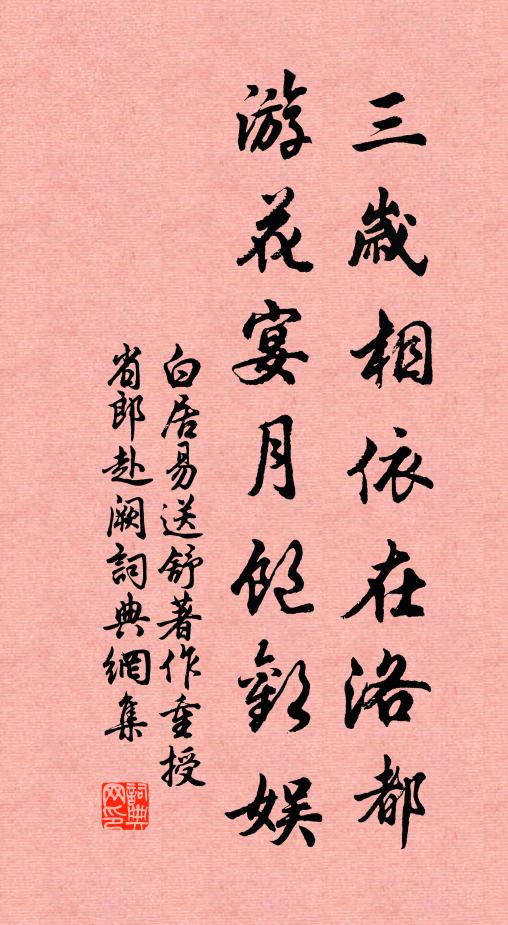 三歲相依在洛都
游花宴月飽歡娛
白居易送舒著作重授
省郎赴闕詞典網集
詞典
网印